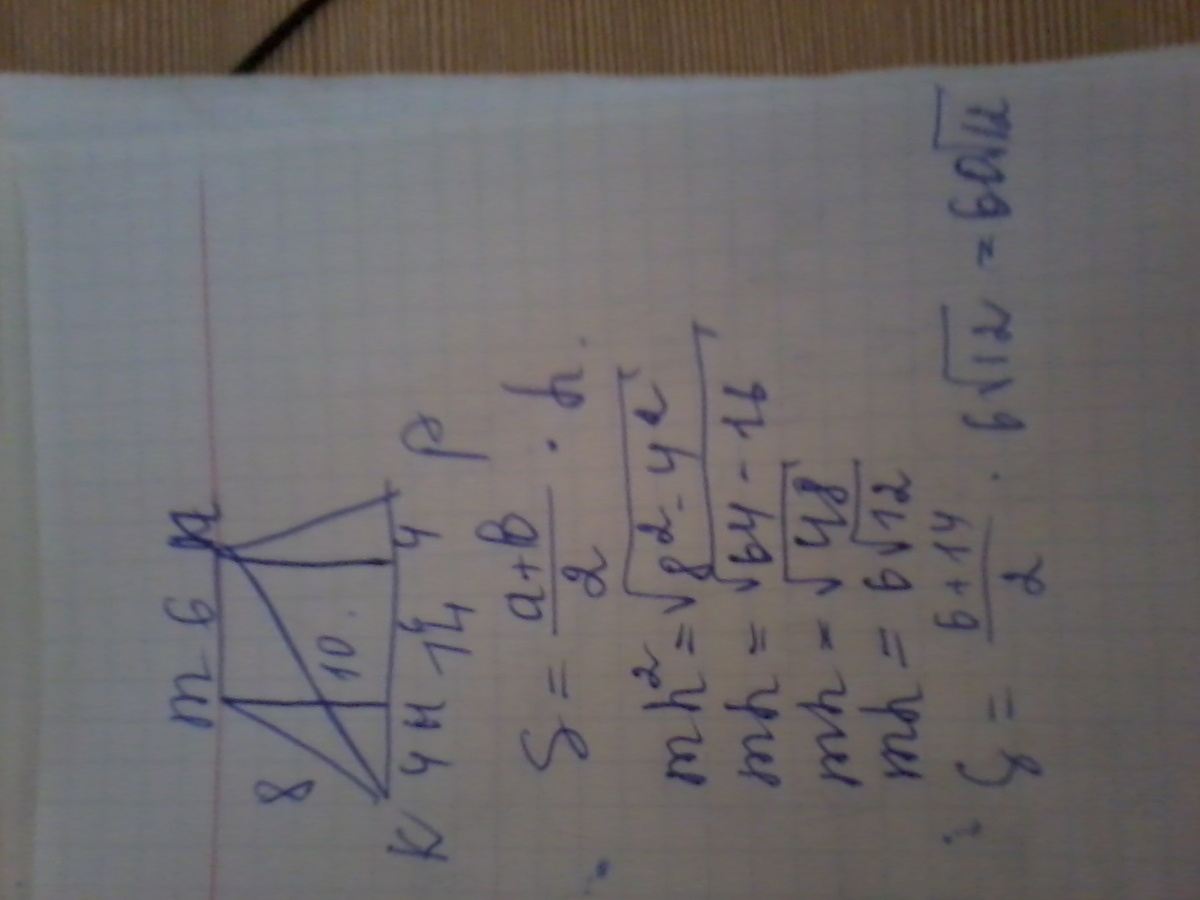 m 6 n
8
10
K 4 H 6 4 P
14
S = a+b/2 · h.
mh² = √8² - 4²
mh = √64 - 16
mh = √48
mh = 6√12
S = 6+14/2 · 6√12 = 60√12